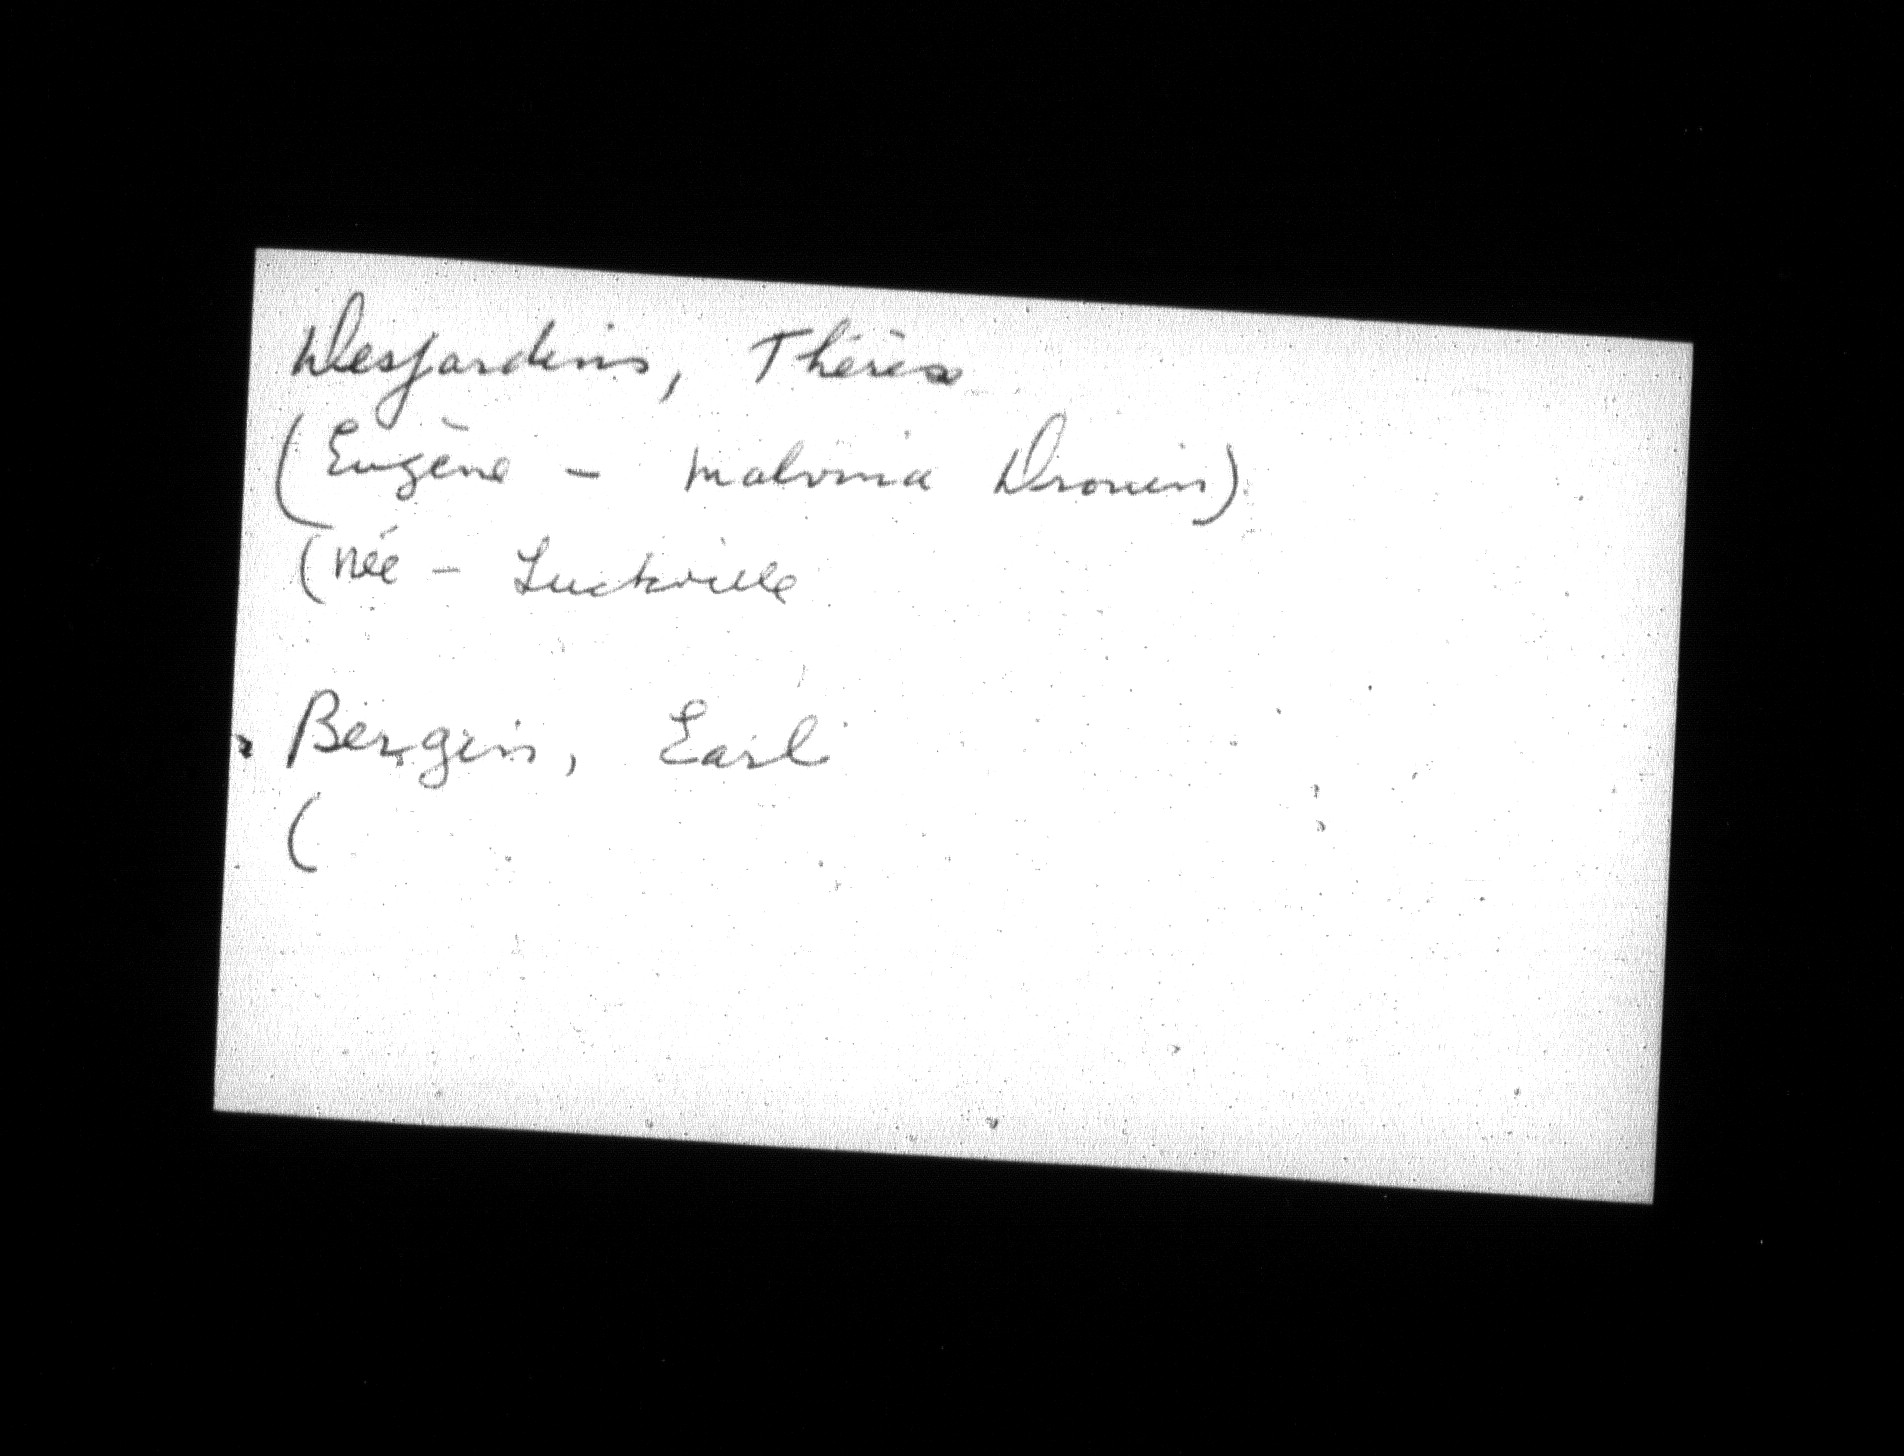 Desjardins, Thérèse
(Eugène - Malvina Drouin)
(née - Luckville
Bergin, Earl
(